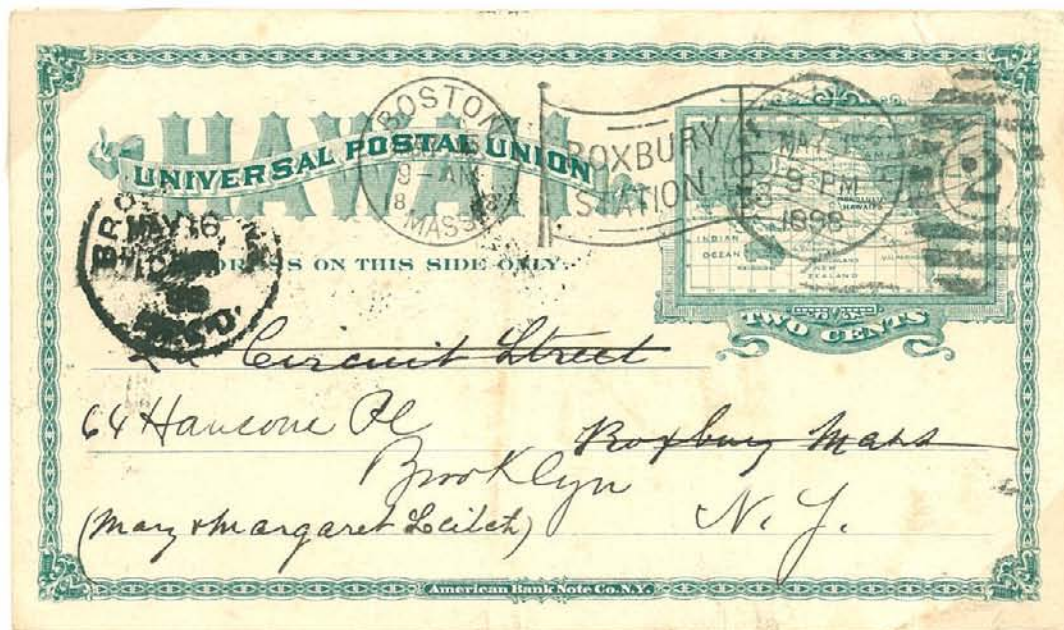 HAWAII
UNIVERSAL POSTAL UNION
BOSTON
9-AM
MASS
ROXBURY
STATION
MAY
9-PM
1898
2
MAY 16
ADDRESS ON THIS SIDE ONLY.
INDIAN
OCEAN
NEW
ZEALAND
TWO CENTS
Circuit Street
64 Hancone Pl
Roxbury Mass
Brooklyn
N. Y.
(Mary & Margaret Leitch)
American Bank Note Co. N.Y.